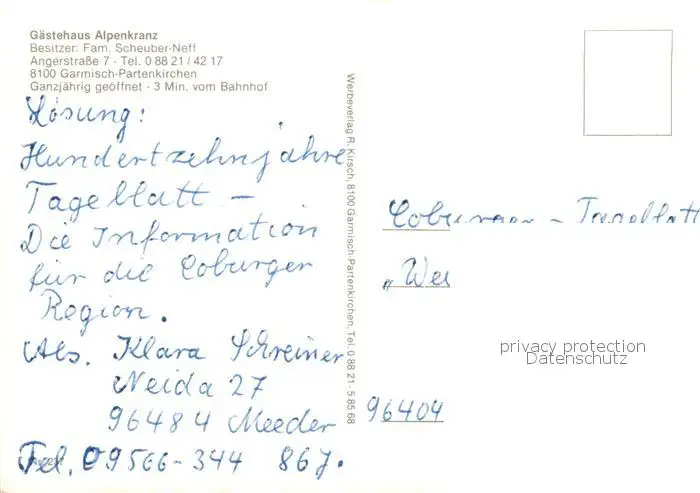 Gästehaus Alpenkranz
Besitzer: Fam. Scheuber-Neff
Angerstraße 7 · Tel. 0 88 21 / 42 17
8100 Garmisch-Partenkirchen
Ganzjährig geöffnet · 3 Min. vom Bahnhof
Lösung:
Hundertzehnjahre
Tageblatt –
Die Information
für die Coburger
Region.
Abs. Klara Schreiner
Neida 27
96484 Meeder
Tel. 09566-344 86J.
Werbeverlag R. Kirsch, 8100 Garmisch-Partenkirchen, Tel. 0 88 21 - 5 85 68
„Wei
privacy protection
Datenschutz
96404